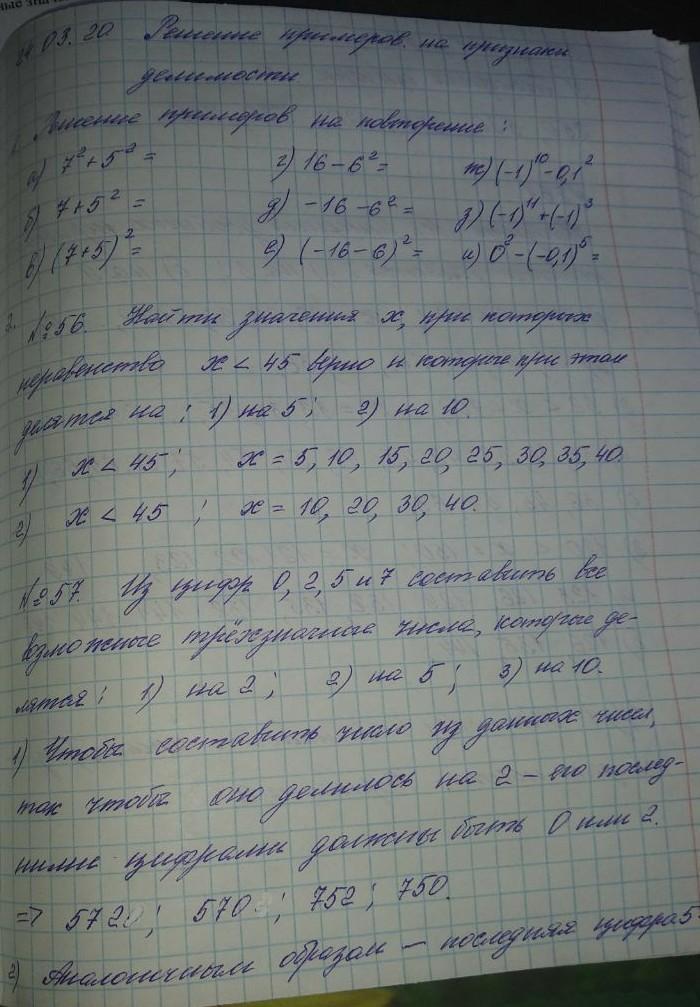 24.03.20 Решение примеров на признаки
делимости
Решение примеров на повторение:
а) 7²+5² = г) 16-6² = ж) (-1)¹⁰-0,1²
б) 7+5² = д) -16-6² = з) (-1)¹¹+(-1)³
в) (7+5)² = е) (-16-6)² = и) 0³-(-0,1)⁵ =
2. №56. Найти значения x, при которых
неравенство x < 45 верно и которые при этом
делятся на: 1) на 5; 2) на 10.
1) x < 45; x = 5, 10, 15, 20, 25, 30, 35, 40.
2) x < 45; x = 10, 20, 30, 40.
№57. Из цифр 0, 2, 5 и 7 составить все
возможные трёхзначные числа, которые де-
лятся: 1) на 2; 2) на 5; 3) на 10.
1) Чтобы составить число из данных чисел,
так чтобы оно делилось на 2 – его послед-
ними цифрами должны быть 0 или 2.
=> 572; 570; 752; 750.
2) Аналогичным образом – последняя цифра 5